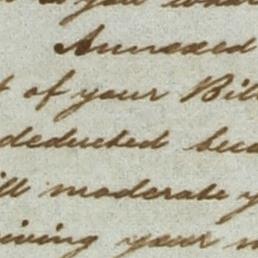 you
Annexed
t of your Bill
deducted bec
ill moderate y
iving your